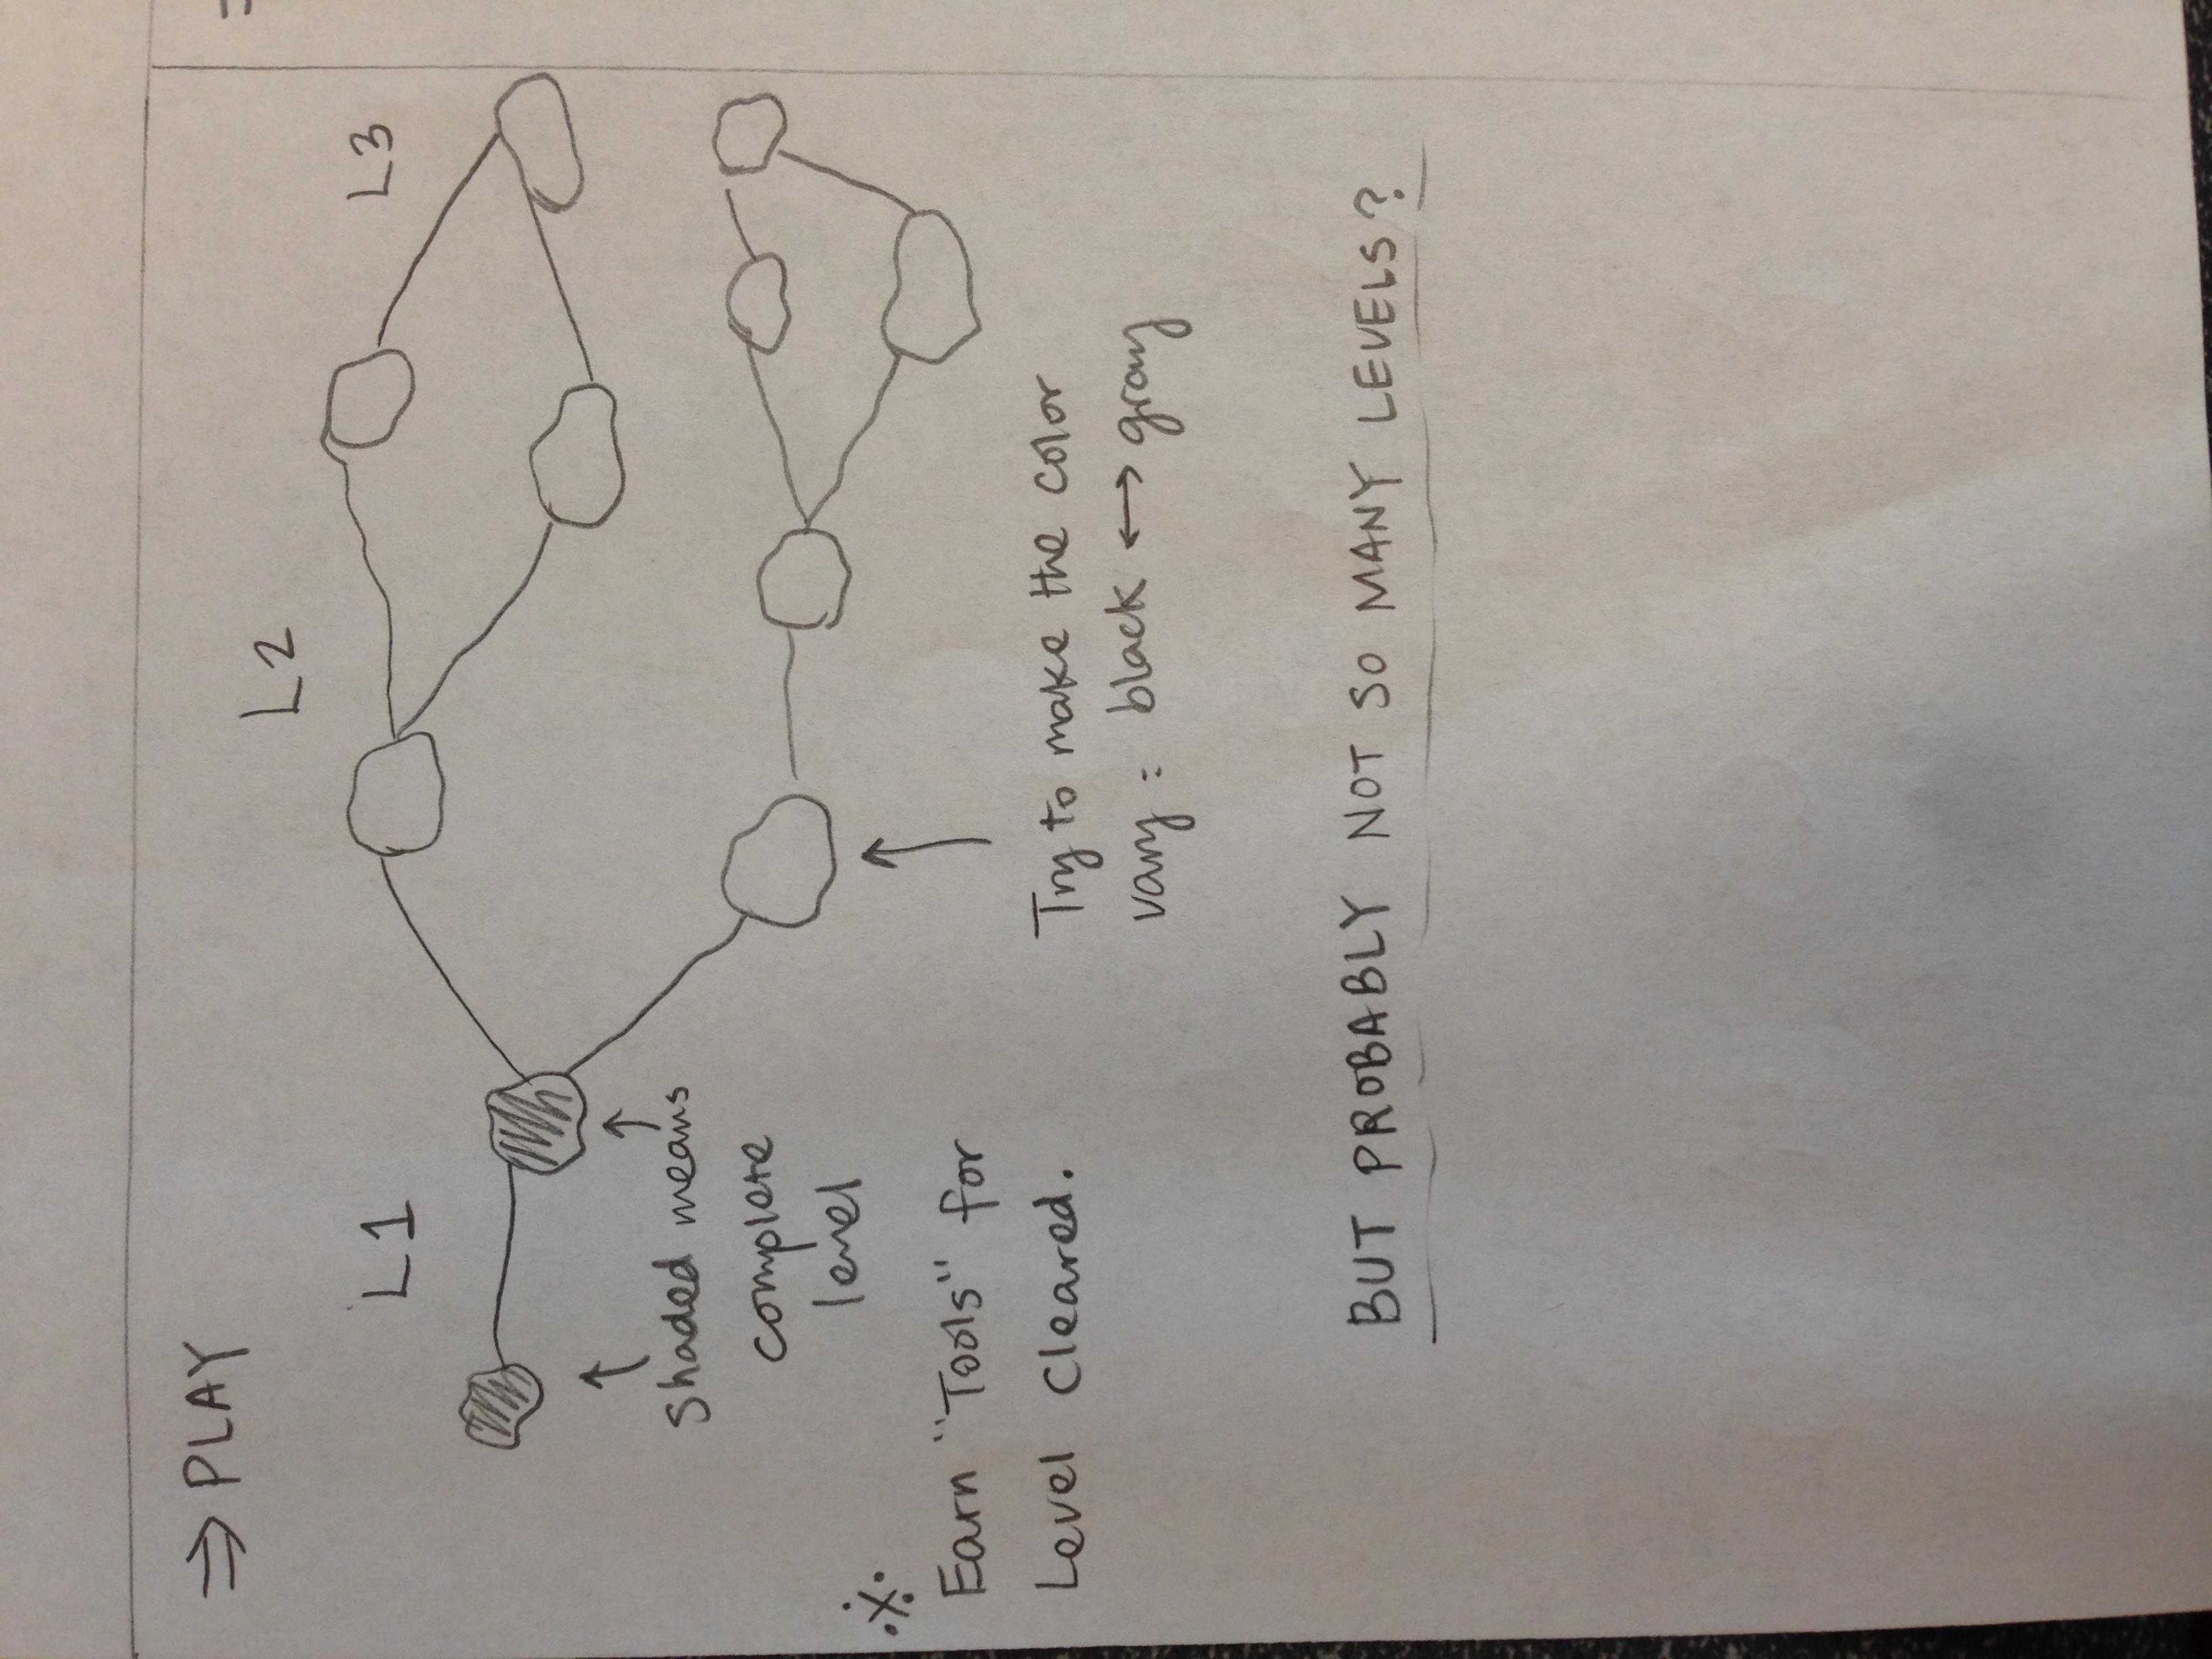 ⇒ PLAY
L2
L1
L3
Shaded means
complete
level
※
Earn "Tools" for
Level Cleared.
Try to make the color
vary : black ↔ gray
BUT PROBABLY NOT SO MANY LEVELS?